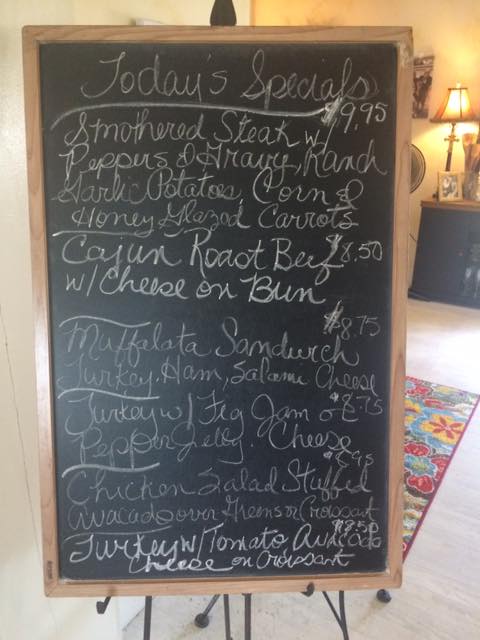 Today's Specials
$9.95
Smothered Steak w/
Peppers & Gravy, Ranch
Garlic Potatoes, Corn &
Honey Glazed Carrots
Cajun Roast Beef $8.50
w/ Cheese on Bun
$8.75
Muffalata Sandwich
Turkey, Ham, Salami Cheese
Turkey w/ Fig Jam or $8.75
Pepper Jelly, Cheese
Chicken Salad Stuffed
Avacado over Greens or Croissant
$8.50
Turkey w/ Tomato Avacado
Cheese on Croissant